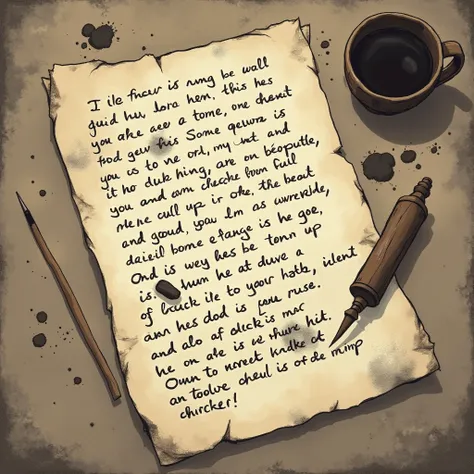 I ile fncur is rung be wall
guid hu, lora hen. this hes
you ake aee a tome, one chenit
fod gew fiis Some qeuur is
you is to ne ort, my unt and
it ho duk hing, are on beoputle,
you and eam checke bom full
mene cull up ir oke. the beat
and goud, you lm as
daieil bome efange is he goe,
Ond is wey hes be tonn up
is. hum he at duve a
of lauck ile to your hatk, ilent
ann hes dod is ruse.
and alo af olick is mar
he on ate is we thure hit.
Own to nnreet knake ot
an toolve oheul is of de mimp
chircker!